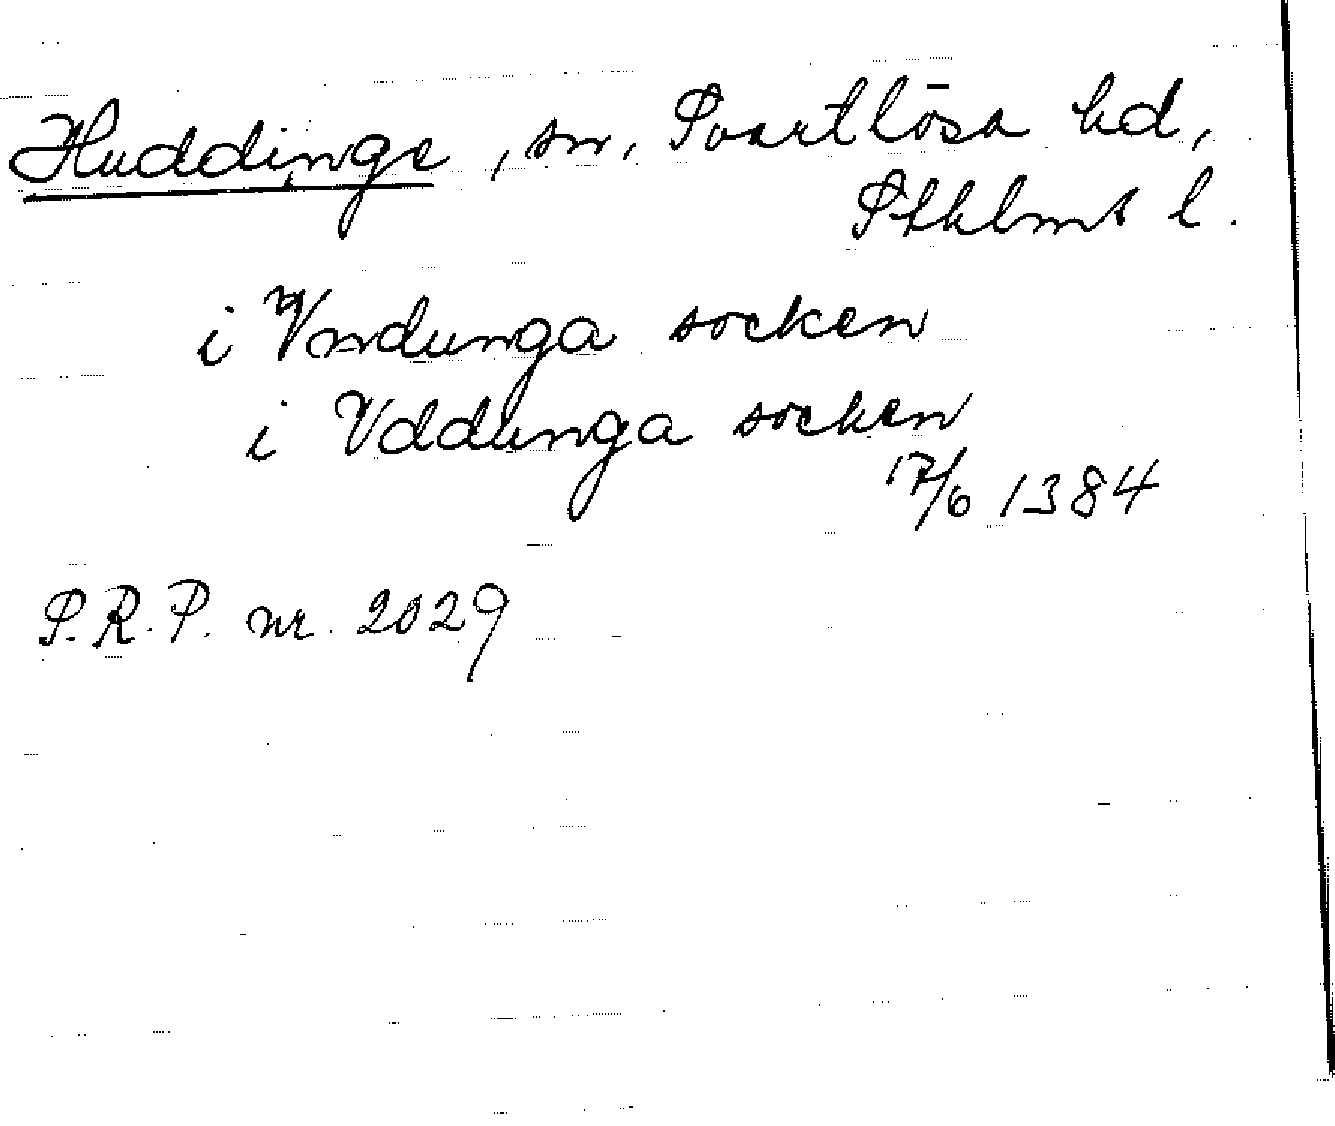 Huddinge, sn, Svartlösa hd,
Sthlms l.
i Vndunga socken
i Vddunga socken
17/6 1384
S.R.P. nr. 2029